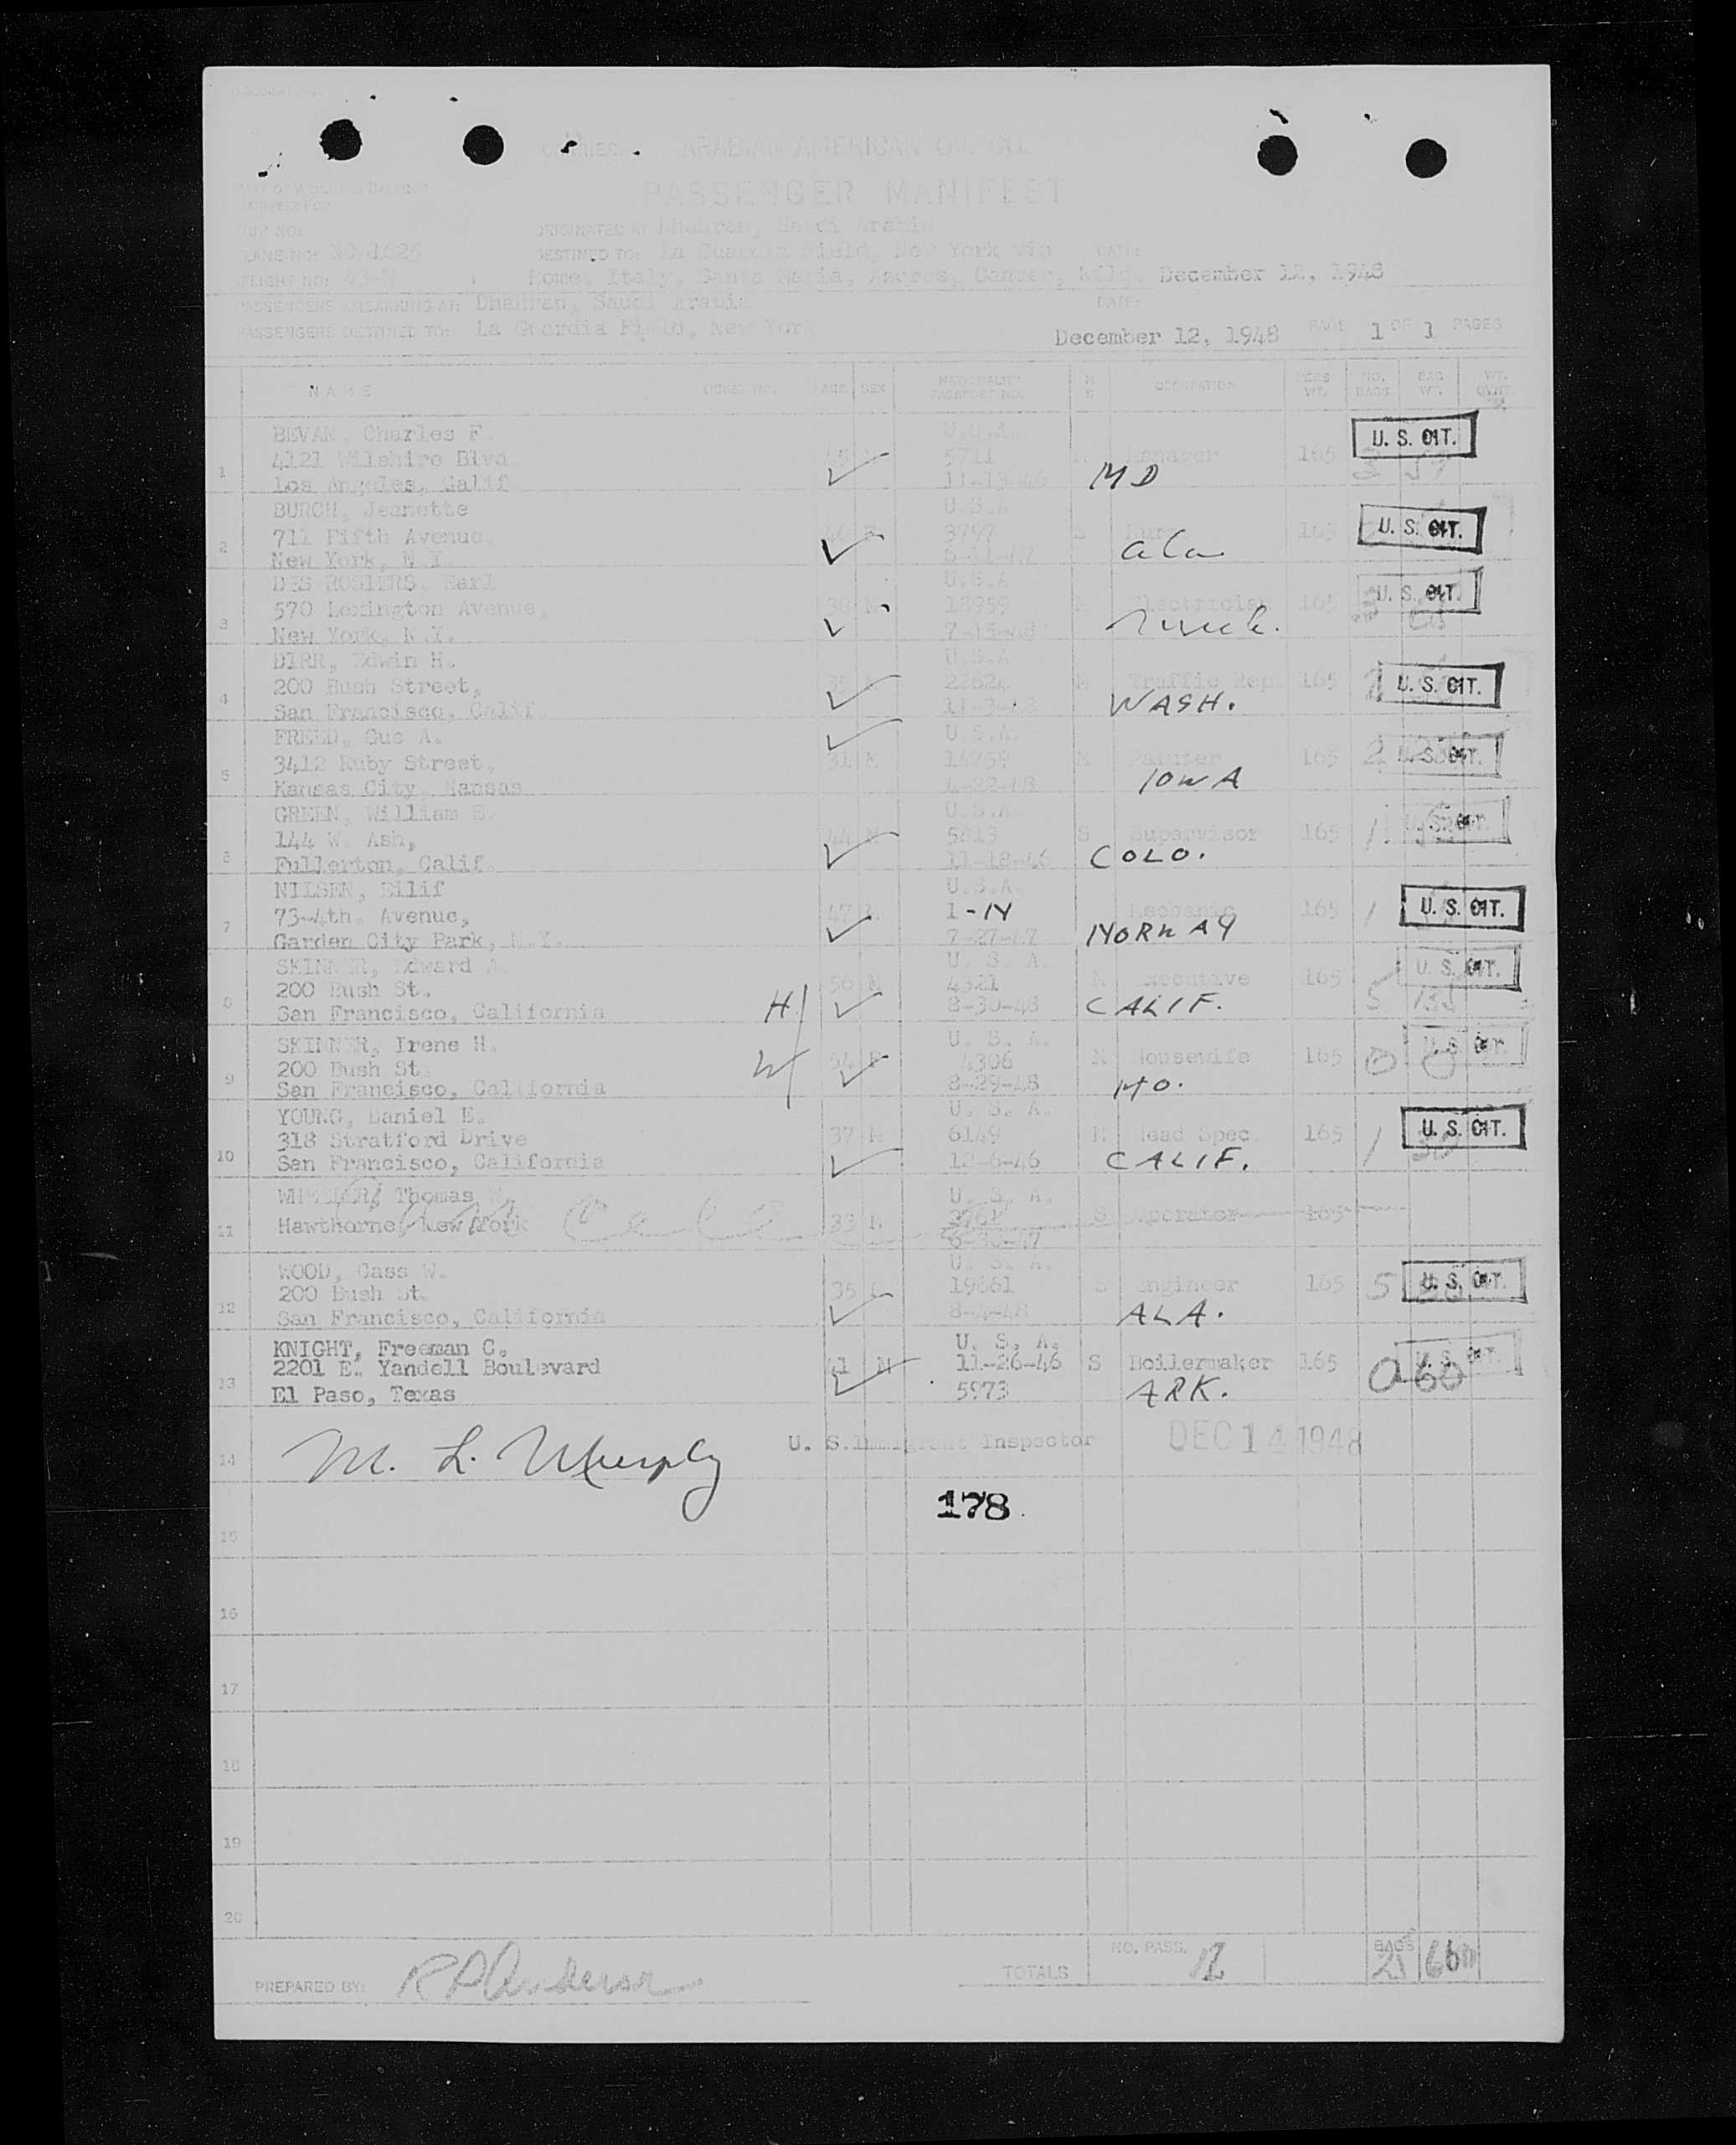 CARRIER: ARABIAN AMERICAN OIL CO.
PASSENGER MANIFEST
TRIP NO:
ORIGINATED AT: Dhahran, Saudi Arabia
PLANE NO: NC-1625
DESTINED TO: La Guardia Field, New York via DATE:
FLIGHT NO:
Rome, Italy, Santa Maria, Azores, Gander, Nfld, December 12, 1948
PASSENGERS EMBARKING AT: Dhahran, Saudi Arabia DATE:
PASSENGERS DESTINED TO: La Guardia Field, New York December 12, 1948 PAGE 1 OF 1 PAGES
NAME TICKET NO. AGE SEX NATIONALITY PASSPORT NO. M S OCCUPATION PERS WT. NO. BAGS BAG WT.
BEVAN, Charles F. U.S.A. U. S. CIT.
1 4121 Wilshire Blvd 45 5711 M Manager 165 3
Los Angeles, Calif 11-13-46 MD
BURCH, Jeanette U.S.A.
2 711 Fifth Avenue, 46 F 3797 S 165 U. S. CIT.
New York, N.Y. ala
DES ROSIERS, Earl U.S.A.
3 570 Lexington Avenue, 38 M 18959 Electrician 165 U. S. CIT.
New York, N.Y. 7-15-48
DIRR, Edwin H. U.S.A.
4 200 Bush Street, 35 22624 M Traffic Rep. 165 2 U. S. CIT.
San Francisco, Calif. 11-3-48 WASH.
FREED, Gus A. U.S.A.
5 3412 Ruby Street, 31 M 14759 M Painter 165 2 U. S. CIT.
Kansas City, Kansas 4-22-48 IOWA
GREEN, William E. U.S.A.
6 144 W. Ash, 44 M 5813 S Supervisor 165 1 U. S. CIT.
Fullerton, Calif. 11-18-46 COLO.
NILSEN, Eilif U.S.A.
7 73-4th. Avenue, 47 1-N Mechanic 165 1 U. S. CIT.
Garden City Park, N.Y. 7-27-47 NORWAY
SKINNER, Edward A. U. S. A. U. S. CIT.
8 200 Bush St. 56 M 4321 M Executive 165 5 135
San Francisco, California H 8-30-48 CALIF.
SKINNER, Irene H. U. S. A. U. S. CIT.
9 200 Bush St. W 54 F 4306 M Housewife 165 0 0
San Francisco, California 8-29-48 MO.
YOUNG, Daniel E. U. S. A.
10 318 Stratford Drive 37 M 6149 M Head Spec. 165 1 U. S. CIT.
San Francisco, California 12-6-46 CALIF.
WHEELER, Thomas W. U. S. A.
11 Hawthorne, New York 33 M 3761 S Operator 165
6-30-47
WOOD, Cass W. U. S. A.
12 200 Bush St. 35 19661 S Engineer 165 5 U. S. CIT.
San Francisco, California 8-4-48 ALA.
KNIGHT, Freeman C. U. S. A. U. S. CIT.
13 2201 E. Yandell Boulevard 41 M 11-26-46 S Boilermaker 165 0 60
El Paso, Texas 5973 ARK.
14 M. L. Murphy U. S. Immigrant Inspector DEC 14 1948
178
15
16
17
18
19
20
PREPARED BY: R P Anderson TOTALS NO. PASS. 12 BAGS 25 660